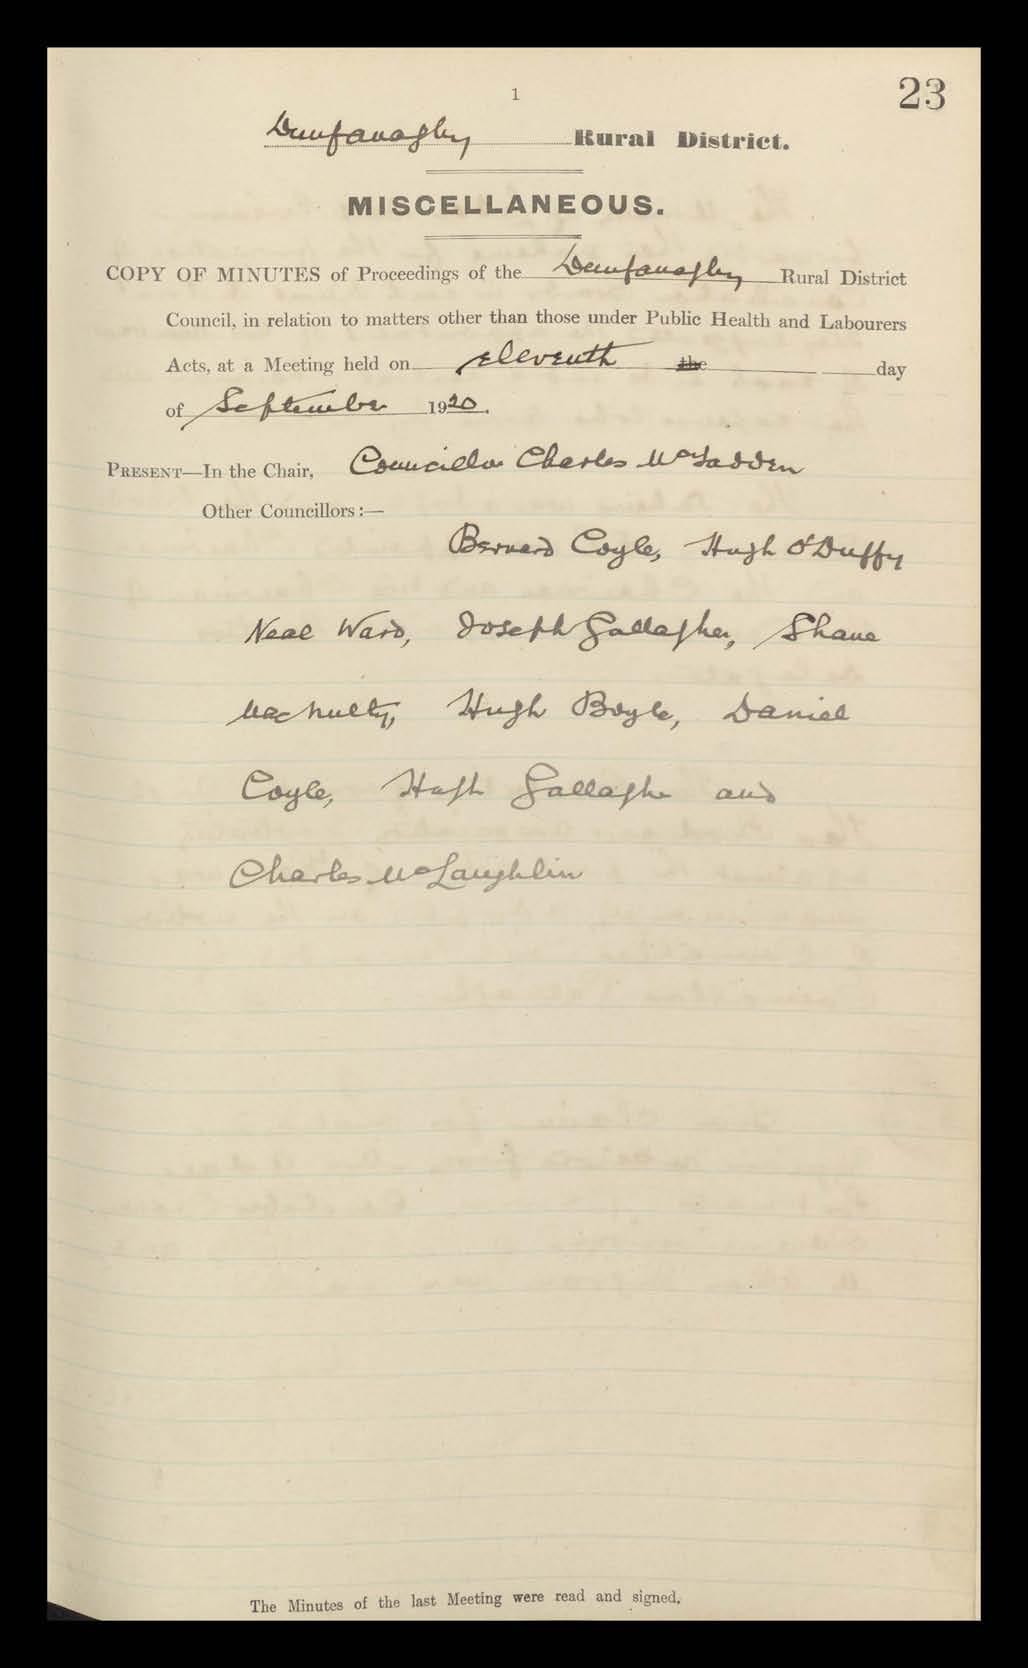 23
1
Dunfanaghy Rural District.
MISCELLANEOUS.
COPY OF MINUTES of Proceedings of the Dunfanaghy Rural District
Council, in relation to matters other than those under Public Health and Labourers
Acts, at a Meeting held on eleventh the day
of September 1920.
PRESENT—In the Chair, Councillor Charles McFadden
Other Councillors:—
Bernard Coyle, Hugh O'Duffy
Neal Ward, Joseph Gallagher, Shane
MacNulty, Hugh Boyle, Daniel
Coyle, Hugh Gallagher and
Charles McLaughlin
The Minutes of the last Meeting were read and signed.